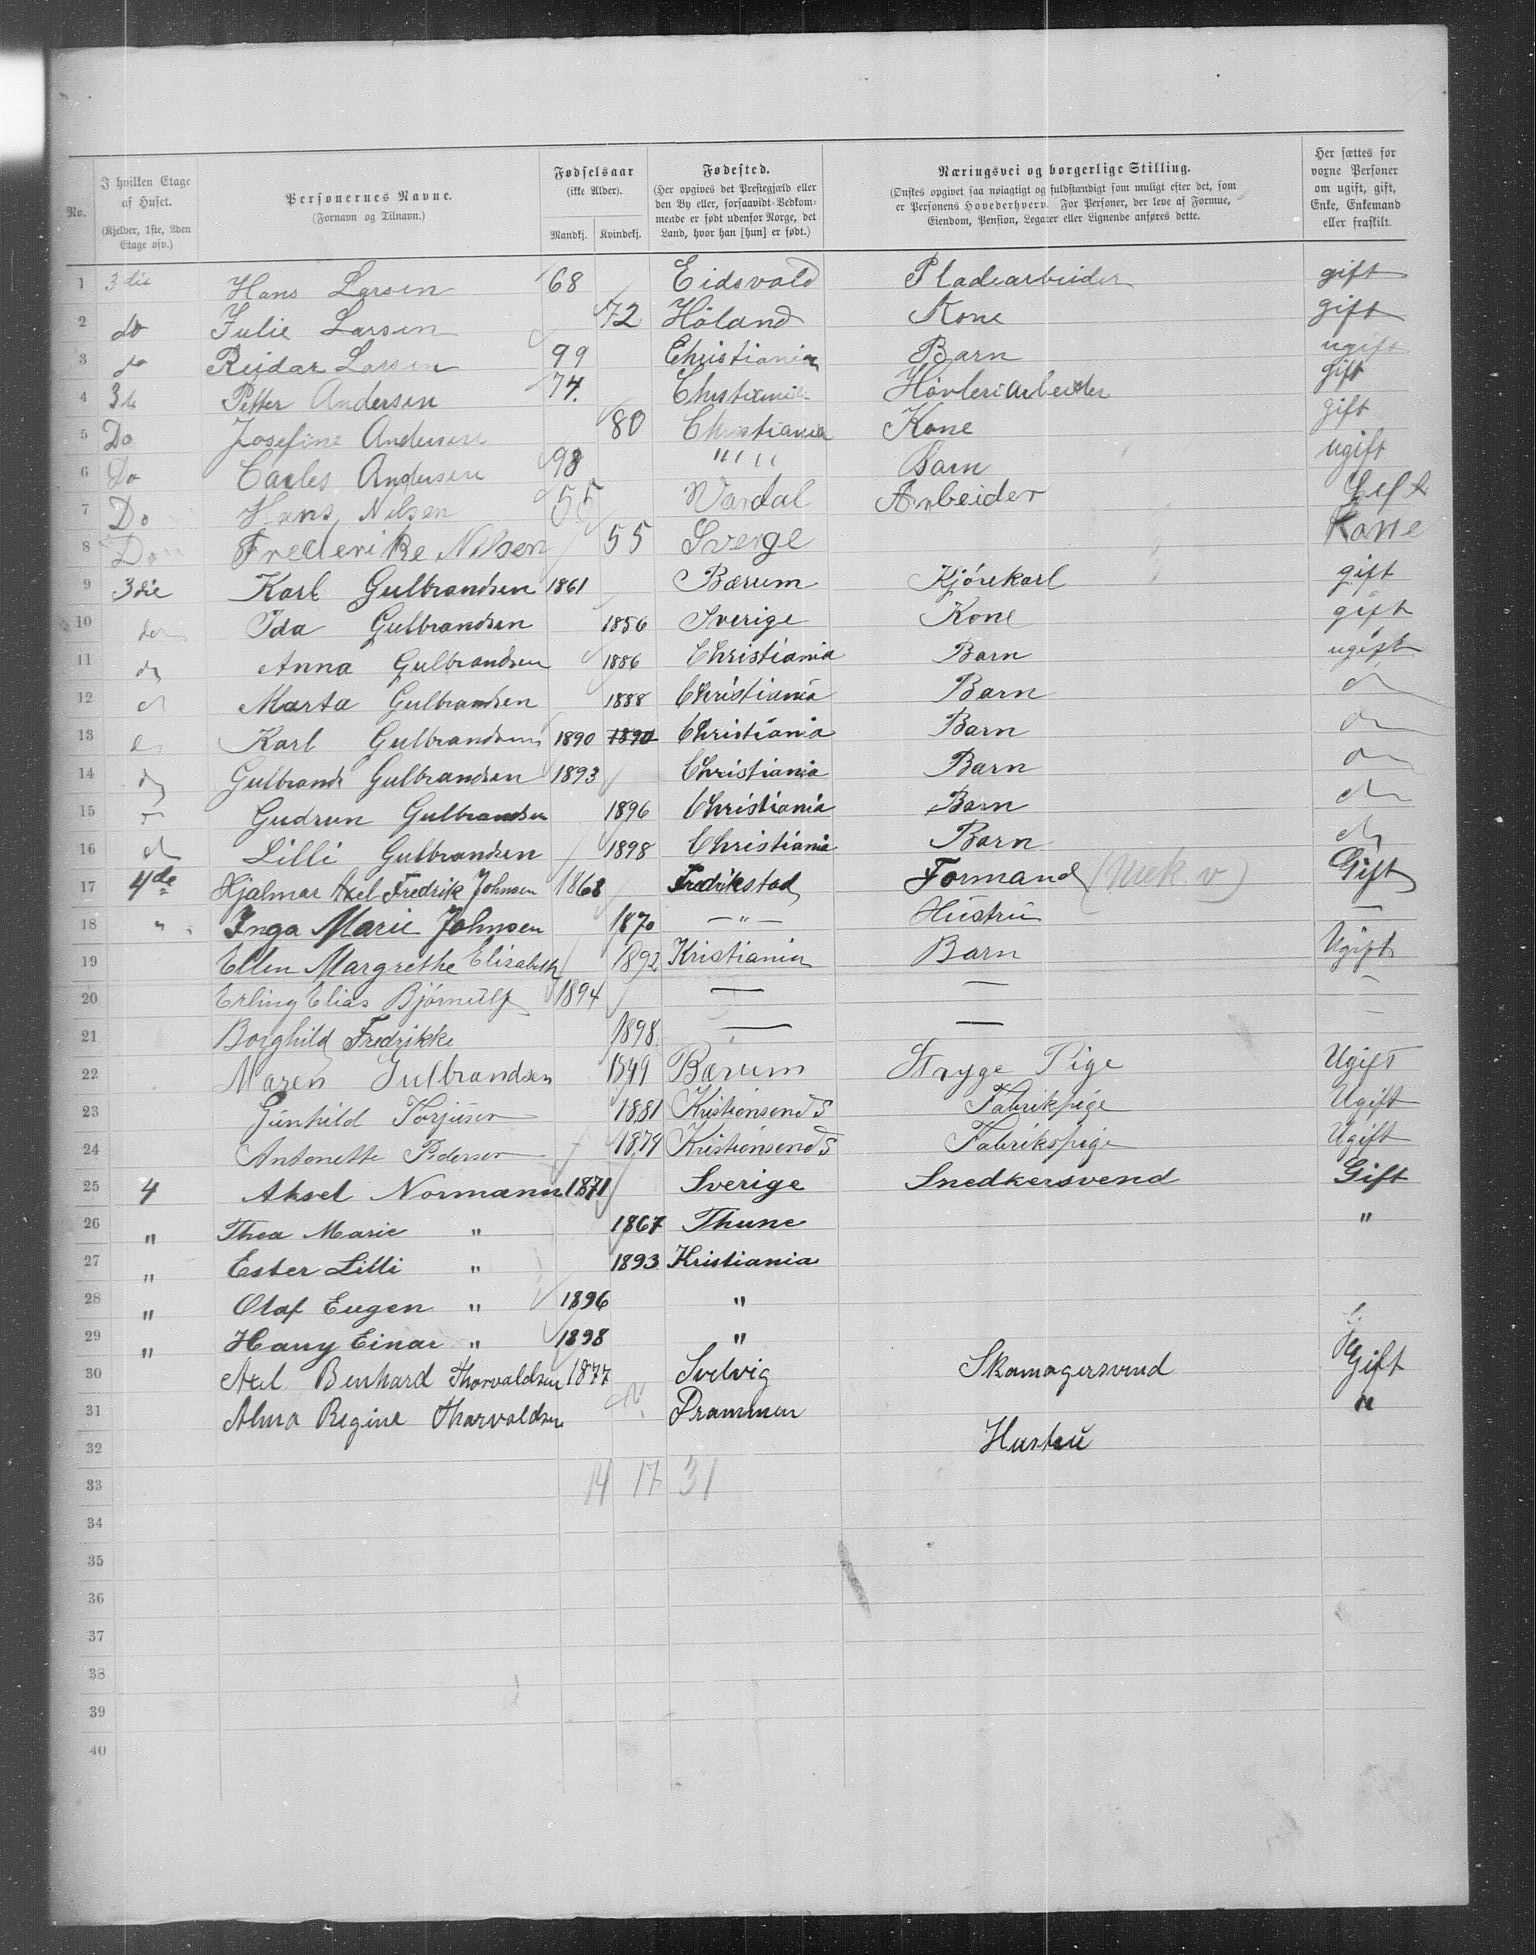 No.
I hvilken Etage af Huset. (Kjelder, 1ste, 2den Etage osv.)
Personernes Navne. (Fornavn og Tilnavn.)
Fødselsaar (ikke Alder). Mandkj. Kvindekj.
Fødested. (Her opgives det Prestegjæld eller den By eller, forsaavidt Vedkommende er født udenfor Norge, det Land, hvor han [hun] er født.)
Næringsvei og borgerlige Stilling. (Ønskes opgivet saa nøiagtigt og fuldstændigt som muligt efter det, som er Personens Hovederhverv. For Personer, der leve af Formue, Eiendom, Pension, Legater eller Lignende anføres dette.
Her sættes for voxne Personer om ugift, gift, Enke, Enkemand eller fraskilt.
1 3die Hans Larsen 68 Eidsvold Pladearbeider gift
2 do Julie Larsen 72 Höland Kone gift
3 do Reidar Larsen 99 Christiania Barn ugift
4 Petter Andersen 74. Christiania Høvleriarbeider gift
5 Do Josefine Andersen 80 Christiania Kone gift
6 Do Carles Andersen 98 " " " " Barn ugift
7 Do Hans Nilsen 55 Vardal Arbeider Gift
8 Do Frederikke Nilsen 55 Sverge Kone
9 3die Karl Gulbrandsen 1861 Bærum Kjörekarl gift
10 do Ida Gulbrandsen 1856 Sverige Kone gift
11 do Anna Gulbrandsen 1886 Christiania Barn ugift
12 d Marta Gulbrandsen 1888 Christiania Barn d
13 Karl Gulbrandsen 1890 1890 Christiania Barn d
14 do Gulbrand Gulbrandsen 1893 Christiania Barn d
15 Gudrun Gulbrandsen 1896 Christiania Barn d
16 d Lilli Gulbrandsen 1898 Christiania Barn d
17 4de Hjalmar Axel Fredrik Johnsen 1868 Fredrikstad Formand (Mek v) Gift
18 " Inga Marie Johnsen 1870 — " — Hustru —
19 Ellen Margrethe Elisabeth 1892 Kristiania Barn Ugift
20 Erling Elias Bjørnulf 1894 — — —
21 Borghild Fredrikke 1898 — — —
22 Maren Gulbrandsen 1849 Bærum Stryge Pige Ugift
23 Gunhild Torjusen 1881 Kristiansand S Fabrikpige Ugift
24 Antonette Pedersen 1874 Kristiansand S Fabrikspige Ugift
25 4 Aksel Normann 1871 Sverige Snedkersvend Gift
26 " Thea Marie " 1867 Thune "
27 " Ester Lilli " 1893 Kristiania
28 " Olaf Eugen " 1896 "
29 " Harry Einar " 1898 "
30 Axel Benhard Thorvaldsen 1877 Svelvig Skomagersvend Gift
31 Alma Regine Thorvaldsen Drammen "
32 Hustru
33 14 17 31
34
35
36
37
38
39
40